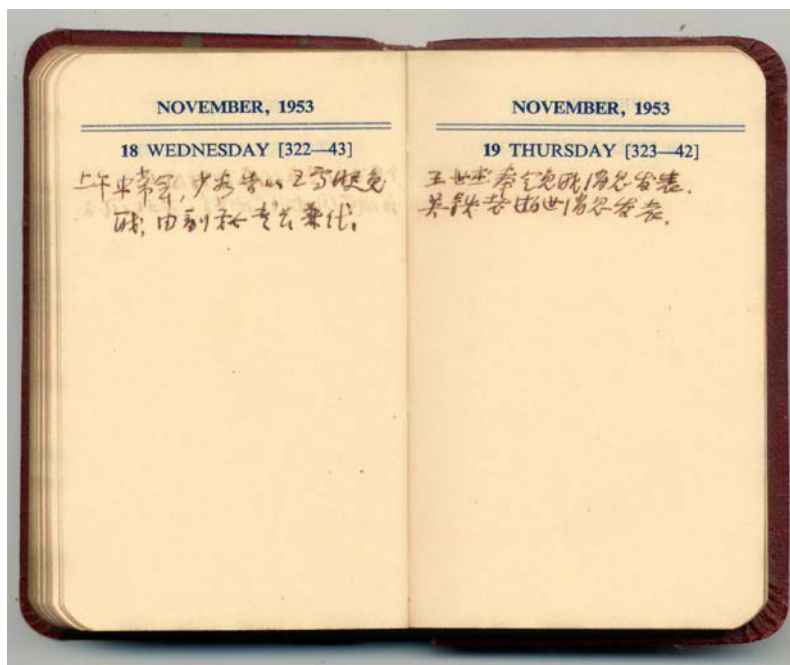 NOVEMBER, 1953
18 WEDNESDAY [322—43]
上午中常会, 少谷告以王雪艇免
职, 由副秘书长兼代。
NOVEMBER, 1953
19 THURSDAY [323—42]
王世杰奉令免职消息发表.
吴铁老逝世消息发表.